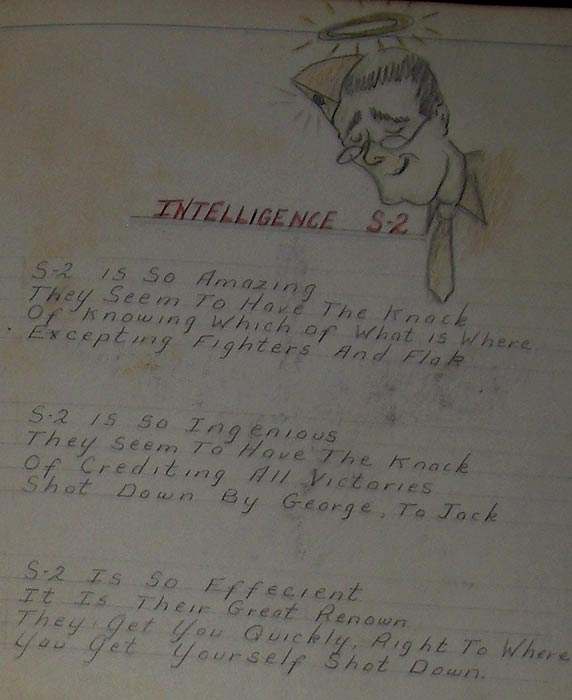 INTELLIGENCE S-2
S-2 is So Amazing
They Seem To Have The Knack
Of Knowing Which of What is Where
Excepting Fighters And Flak
S-2 is So Ingenious
They Seem To Have The Knack
Of Crediting All Victories
Shot Down By George, To Jack
S-2 Is So Effecient
It Is Their Great Renown
They Get You Quickly, Right To Where
You Get Yourself Shot Down.